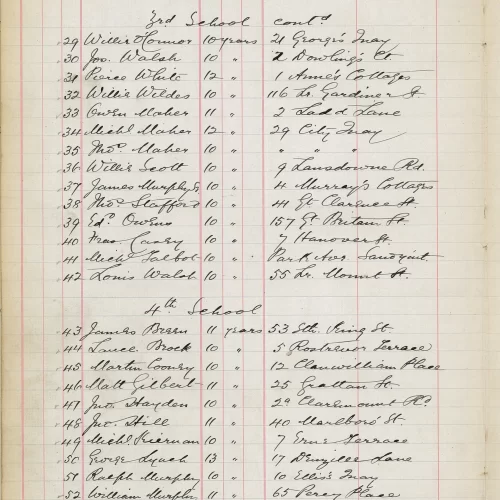 3rd School contd
29 Willie O'Connor 10 years 21 George's Quay
30 Jos. Walsh 10 " 2 Dowling's Ct
31 Pierce White 12 " 1 Anne's Cottages
32 Willie Wildes 10 " 116 Lr. Gardiner St
33 Owen Maher 11 " 2 Ladd Lane
34 Michl Maher 12 " 29 City Quay
35 Thos. Maher 10 " " " "
36 Willie Scott 10 " 9 Lansdowne Rd.
37 James Murphy 10 " 4 Murray's Cottages
38 Thos. Stafford 10 " 41 Gt Clarence St.
39 Edd. Owens 10 " 157 Gt. Britain St.
40 Fras. Casey 10 " 7 Hanover St.
41 Michl Talbot 10 " Park Ave. Sandymt.
42 Louis Walsh 10 " 55 Lr. Mount St.
4th School
43 James Breen 11 years 53 Sth. King St
44 Laurce. Brock 10 " 5 Rostrevor Terrace
45 Martin Cooney 10 " 12 Clanwilliam Place
46 Matt Gilbert 11 " 25 Grattan St.
47 Jno. Hayden 10 " 29 Claremount Rd.
48 Jno. Hill 11 " 40 Marlboro' St.
49 Michl Kiernan 10 " 7 Erne Terrace
50 George Lynch 13 " 17 Denzille Lane
51 Ralph Murphy 10 " 10 Ellis's Quay
52 William Murphy 11 " 65 Percy Place